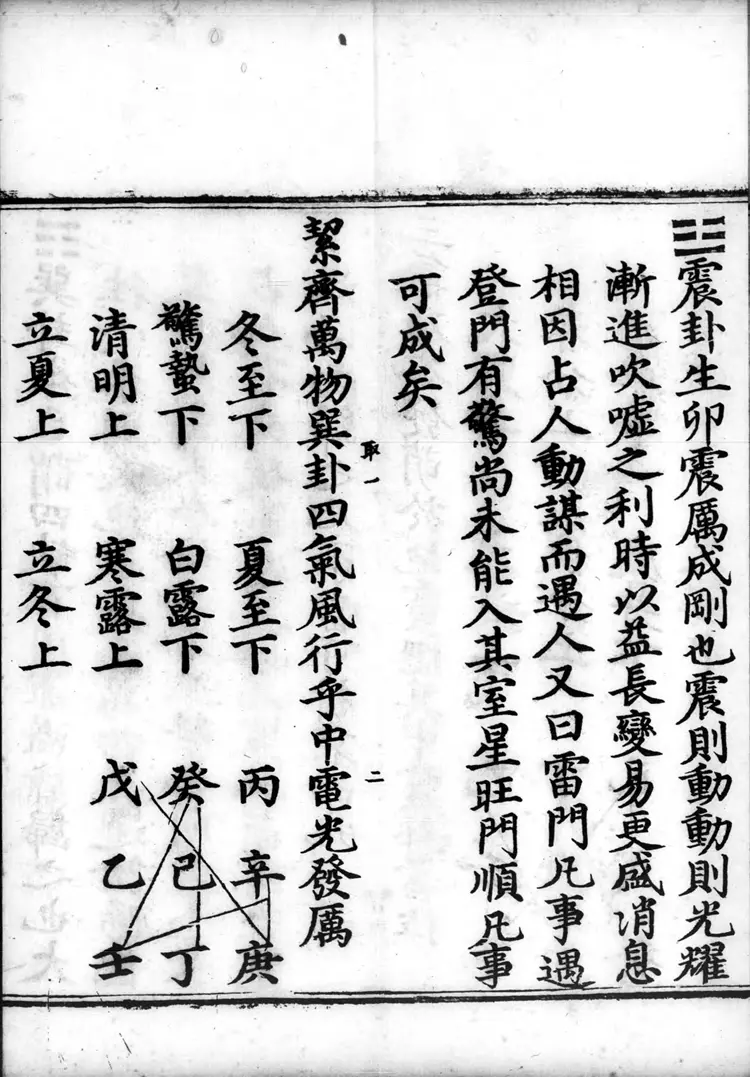 ☳震卦生卯震厲成剛也震則動動則光耀
漸進吹噓之利時以益長變易更盛消息
相因占人動謀而遇人又曰雷門凡事遇
登門有驚尚未能入其室星旺門順凡事
可成矣
取一 二
絜齊萬物巽卦四氣風行乎中電光發厲
冬至下 夏至下 丙 辛 庚
驚蟄下 白露下 癸 己 丁
清明上 寒露上 戊 乙 壬
立夏上 立冬上